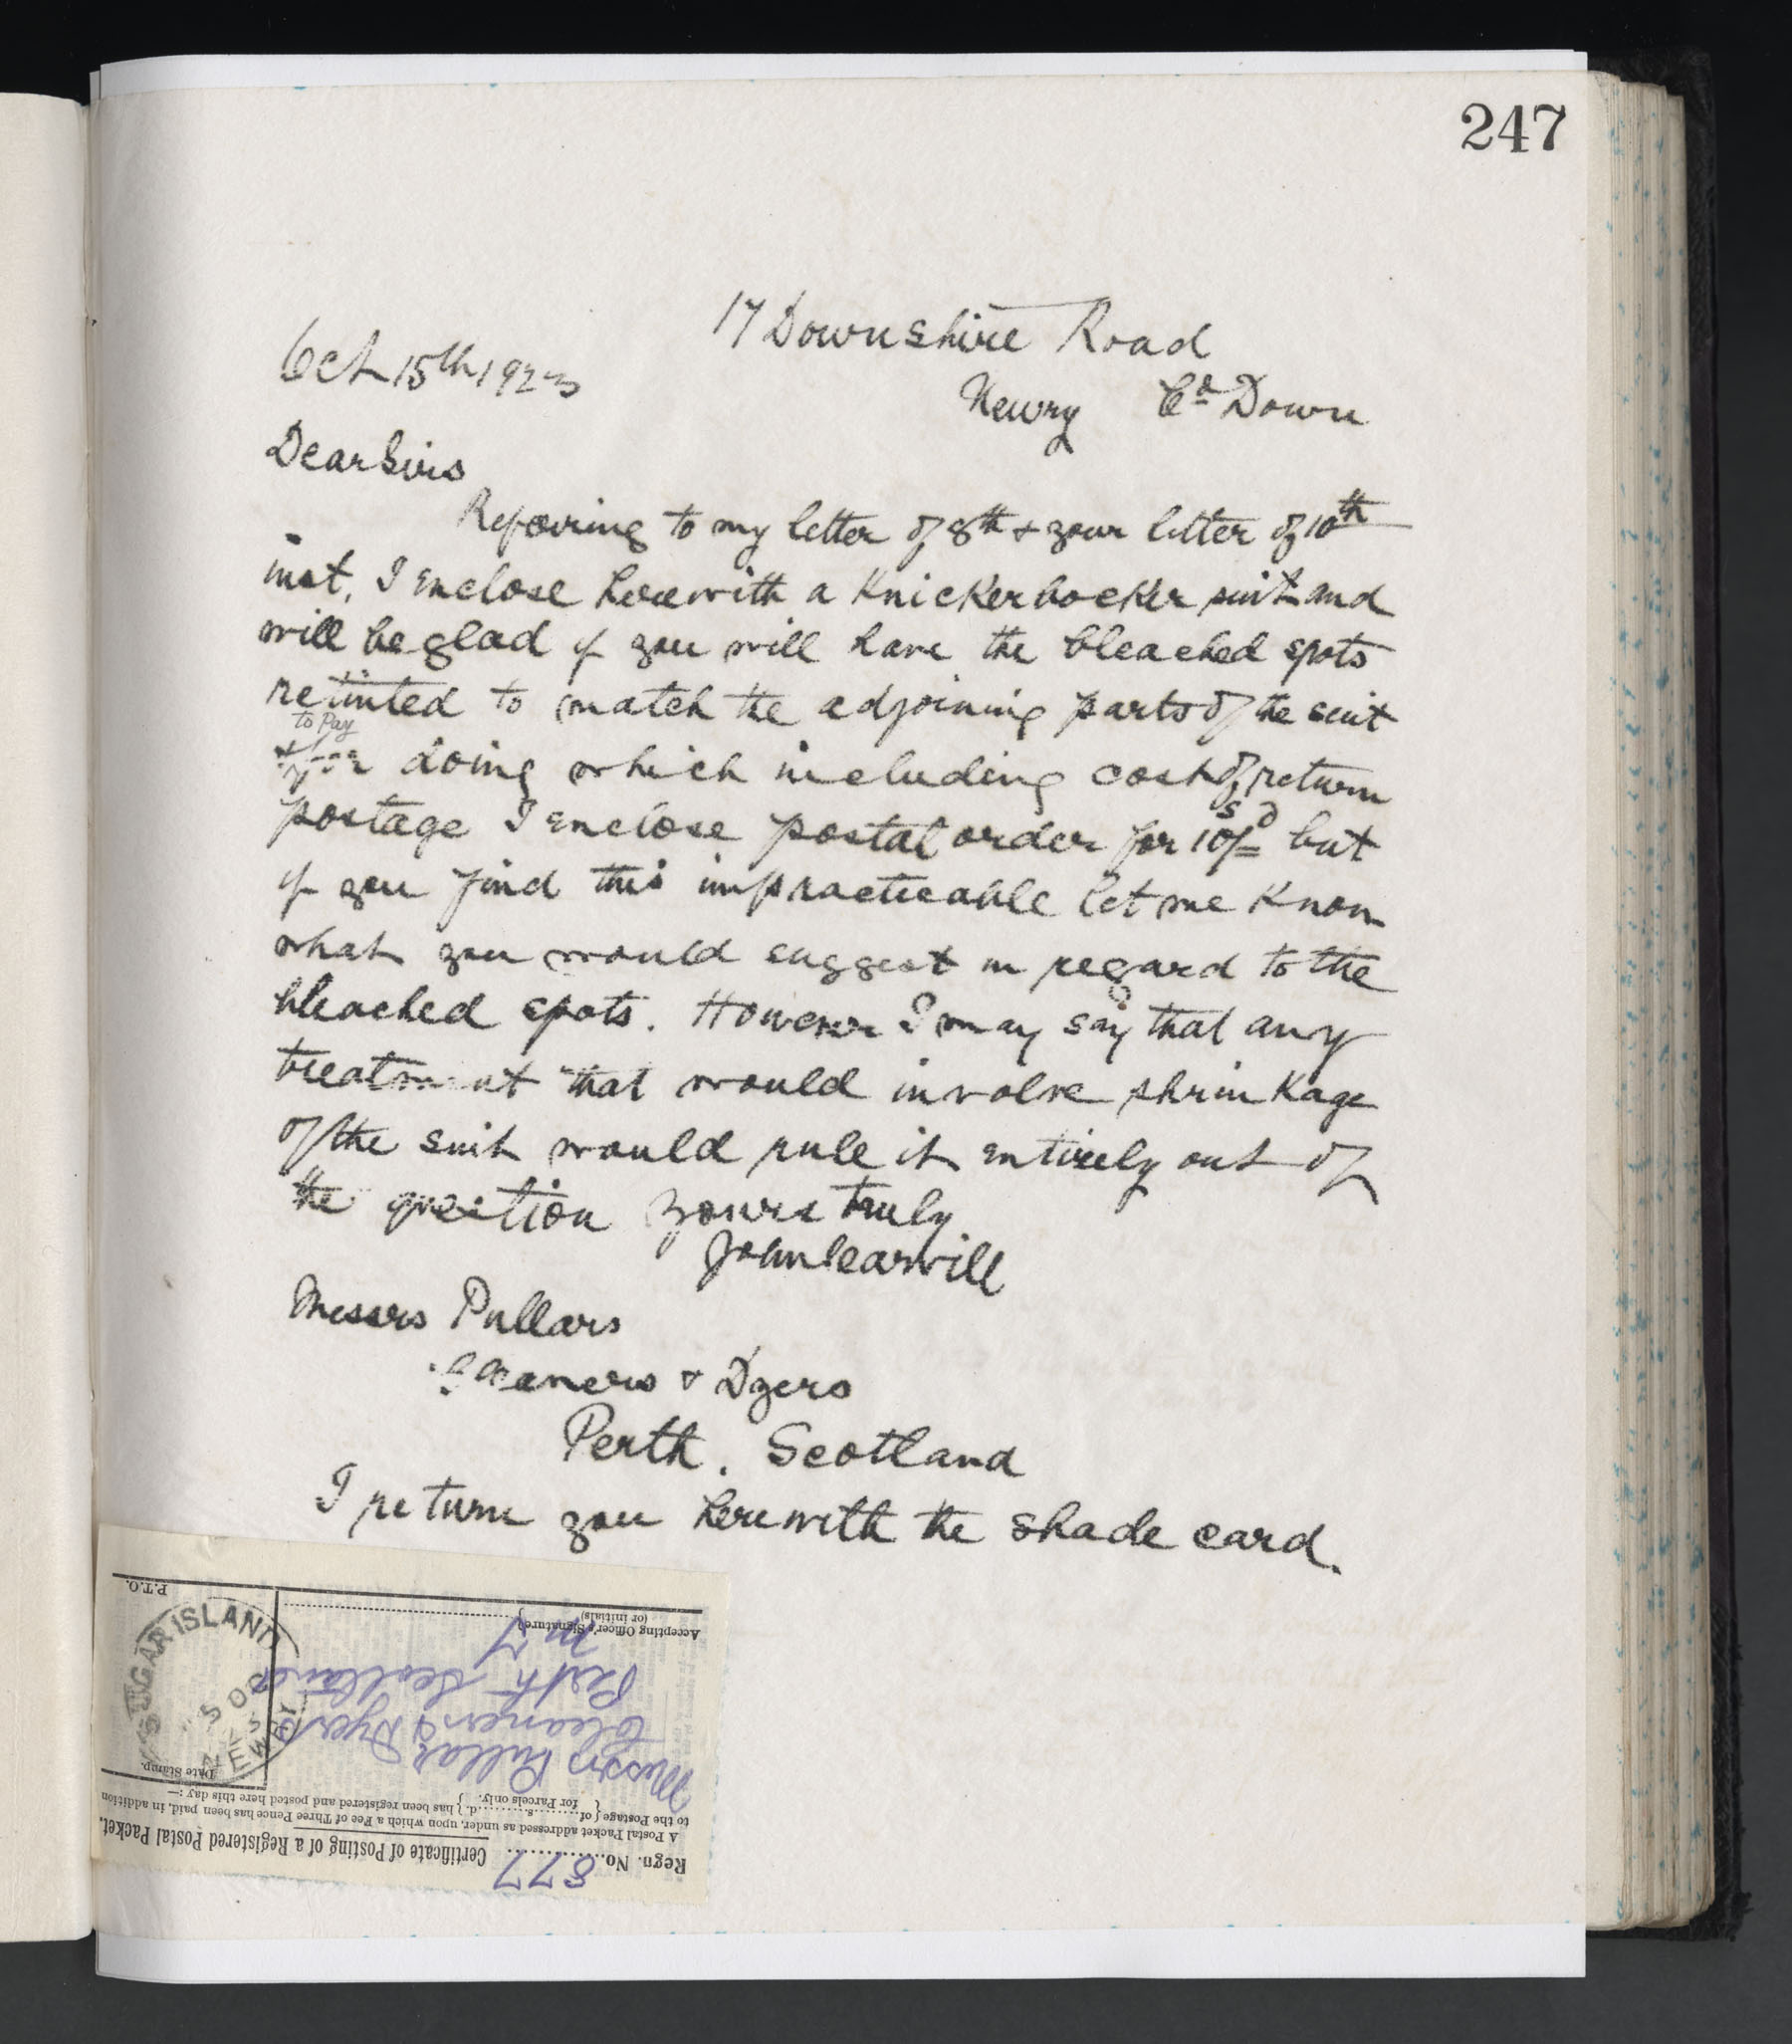 247
17 Downshire Road
Oct 15th 1923
Newry Co Down
Dear Sirs
Referring to my letter of 8th & your letter of 10th
inst, I enclose herewith a Knickerbocker suit and
will be glad if you will have the bleached spots
retinted to match the adjoining parts of the suit
to Pay
for doing which including cost of return
postage I enclose postal order for 10s/=d but
if you find this impracticable let me Know
what you would suggest in regard to the
bleached spots. However I may say that any
treatment that would involve shrinkage
of the suit would rule it entirely out of
the question Yours truly
John Searvill
Messrs Pullars
Cleaners & Dyers
Perth. Scotland
I return you herewith the shade card.
Regn. No. 877 Certificate of Posting of a Registered Postal Packet.
A Postal Packet addressed as under, upon which a Fee of Three Pence has been paid, in addition
to the Postage { of ........s.........d. } has been registered and posted here this day :—
{ for Parcels only. }
Date Stamp.
Messrs Pullars
Cleaners & Dyers
Perth Scotland
Accepting Officer's Signature }
(or initials)
P.T.O.
SUGAR ISLAND
NEWRY